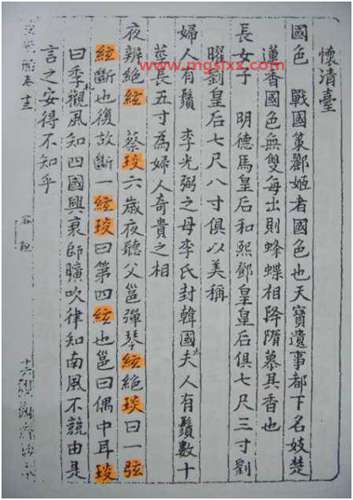 www.mgslxx.com
懷清臺
國色 戰國策酈姬者國色也天寶遺事都下名妓楚
蓮香國色無雙每出則蜂蝶相隨慕其香也
長女子 明德馬皇后和熙鄧皇后俱七尺三寸劉
曜劉皇后七尺八寸俱以美稱
婦人有鬚 李光弼之母李氏封韓國太夫人有鬚數十
莖長五寸為婦人奇貴之相
夜辨絕絃 蔡琰六歲夜聽父邕彈琴絃絕琰曰一弦
絃斷也復故斷一絃琰曰第四絃也邕曰偶中耳琰
曰季札觀風知四國興衰師曠吹律知南風不競由是
言之安得不知乎